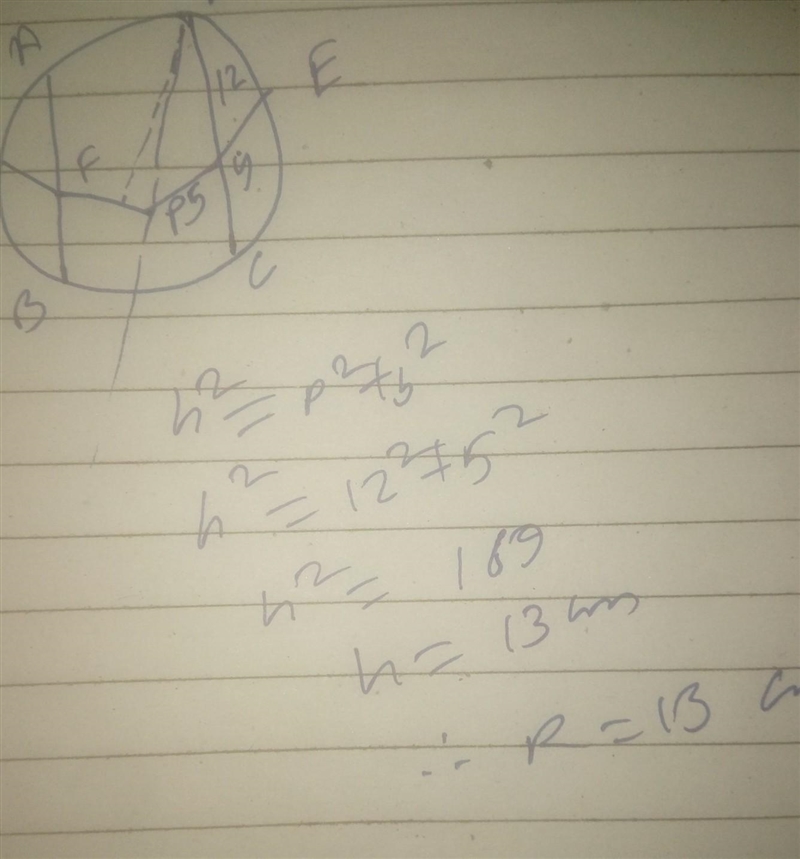 A
12
E
F
9
P5
B
C
h² = p² + b²
h² = 12² + 5²
h² = 169
h = 13 cm
∴ R = 13